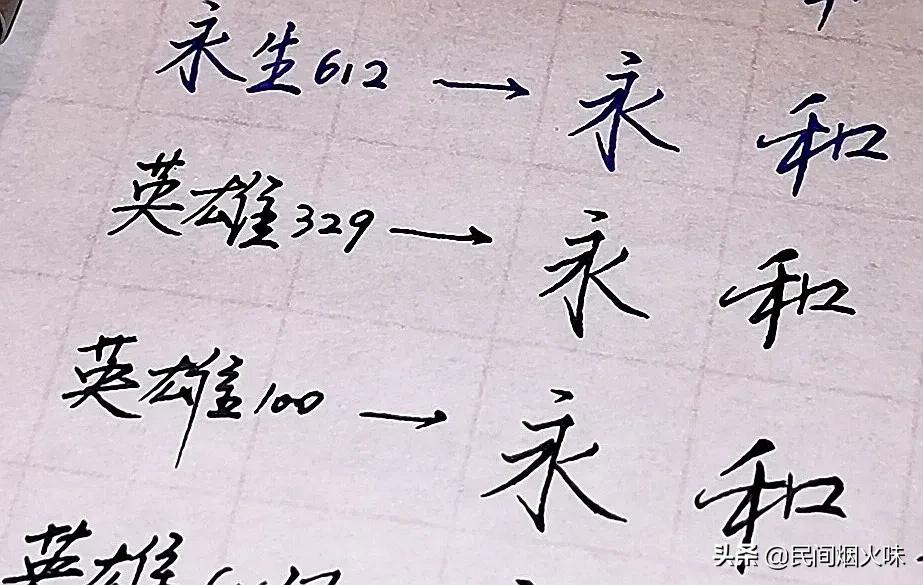 永生612 → 永 和
英雄329 → 永 和
英雄100 → 永 和
英雄
头条 @民间烟火味